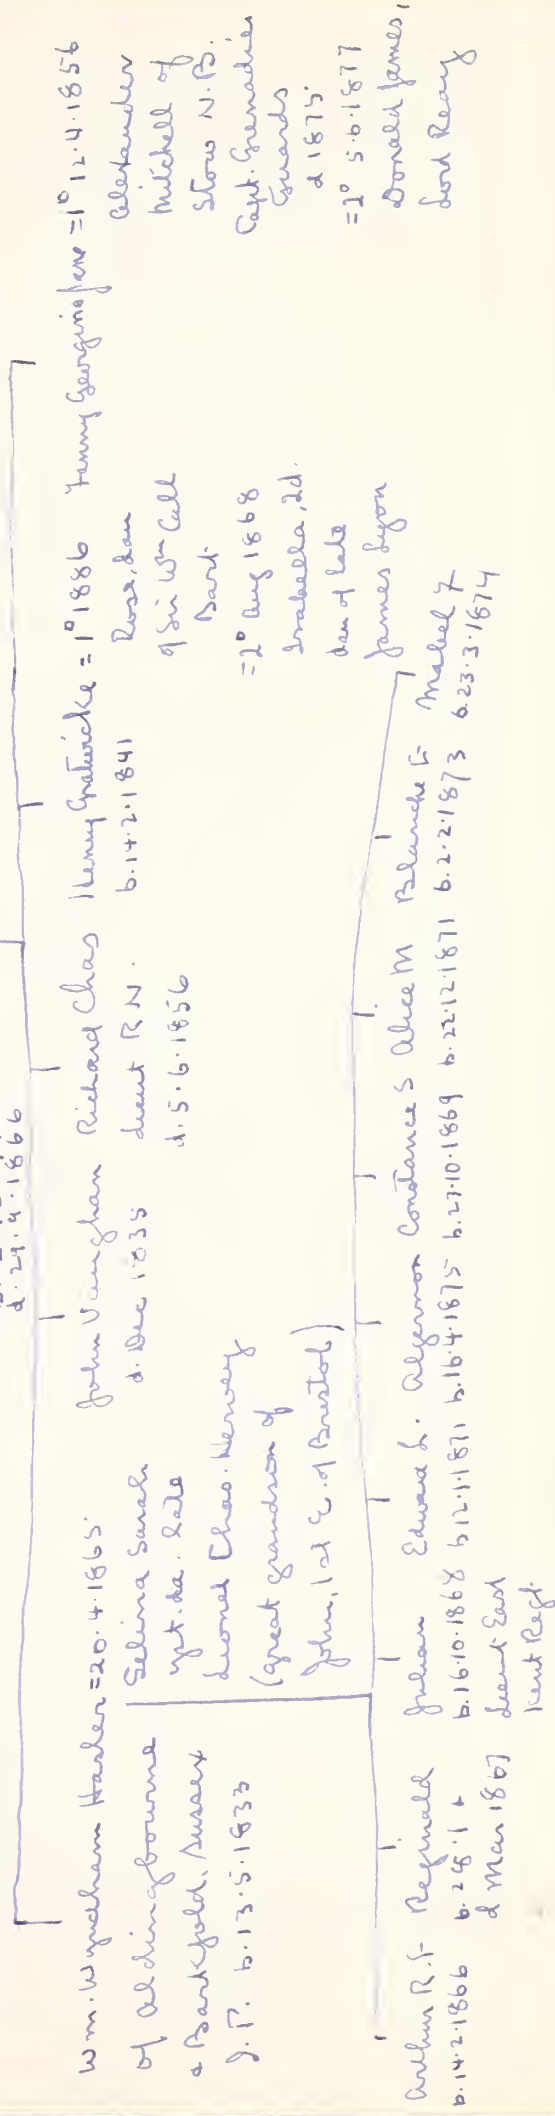 d. 29.4.1866
Wm. Wyndham Hasler = 20.4.1865.
of Aldingbourne
& Barkfold, Sussex
J.P. b. 13.5.1833
Selina Sarah
yst. da. late
Lionel Chas. Hervey
(great grandson of
John, 1st E. of Bristol)
John Vaughan
d. Dec 1835
Richard Chas
Lieut R.N.
d. 5.6.1856
Henry Gratwicke = 1° 1886
b. 14.2.1841
Rose, dau
of Sir Wm Call
Bart
= 2° Aug 1868
Isabella, 2d.
dau of late
James Lyon
Fanny Georgina Jane = 1° 12.4.1856
Alexander
Mitchell of
Stow N.B.
Capt. Grenadier
Guards
d 1875.
= 2° 5.6.1877
Donald James,
Lord Reay
Arthur R. F.
b. 14.2.1866
Reginald
b. 28.1
d Mar 1867
Julian
b. 16.10.1868
Lieut East
Kent Regt.
Edward L.
b 12.1.1871
Algernon
b. 16.4.1875
Constance S
b. 27.10.1869
Alice M
b. 22.12.1871
Blanche E
b. 2.2.1873
Mabel F
b. 23.3.1874